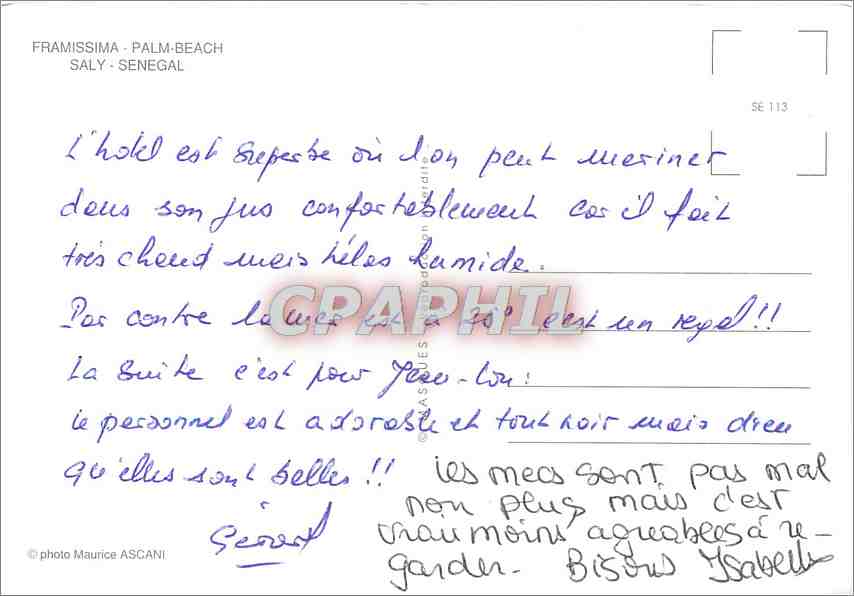 FRAMISSIMA - PALM-BEACH
SALY - SENEGAL
SE 113
L'hotel est superbe où l'on peut mariner
dans son jus confortablement car il fait
très chaud mais hélas humide.
Par contre la mer est à 28° c'est un regal!!
La suite c'est pour Jean-Lou:
le personnel est adorable et tout noir mais dieu
qu'elles sont belles!!
Gérard
les mecs sont pas mal
non plus mais c'est
vrai moins agreables à re-
garder. Bisous Isabelle
© photo Maurice ASCANI
CPAPHIL
reproduction interdite